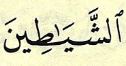 ٱلشَّيَـٰطِينَ